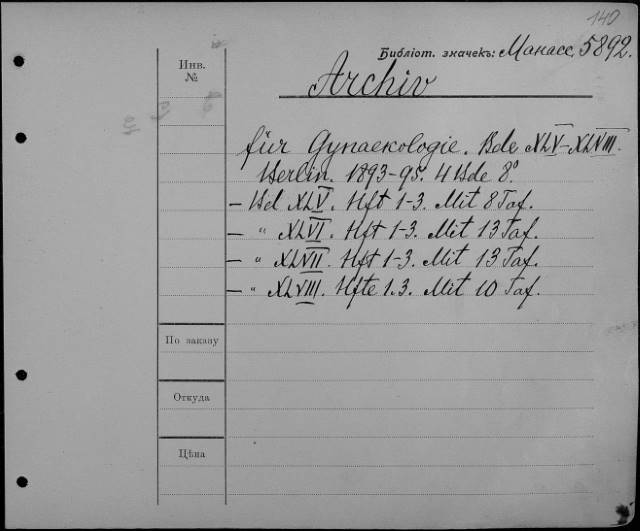 140
Библіот. значекъ: Манасс. 5892.
Инв.
№
Archiv
für Gynaekologie. Bde XLV–XLVIII.
Berlin. 1893–95. 4 Bde 8°.
– Bd XLV. Hft 1–3. Mit 8 Taf.
– " XLVI. Hft 1–3. Mit 13 Taf.
– " XLVII. Hft 1–3. Mit 13 Taf.
– " XLVIII. Hfte 1.3. Mit 10 Taf.
По заказу
Откуда
Цѣна